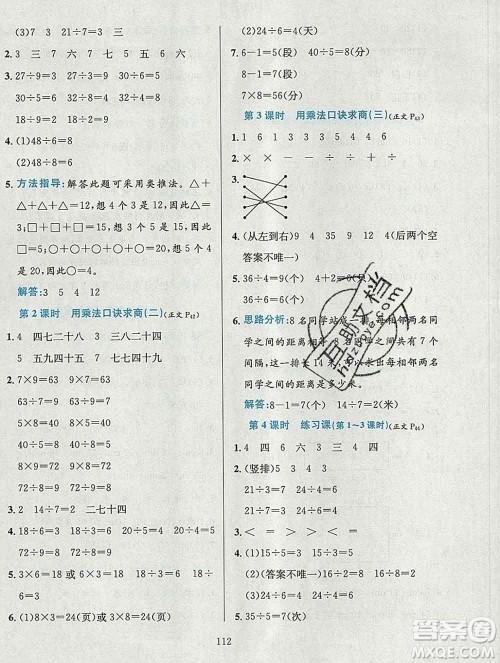 (3)7 3 21÷7=3
2. 3 三 七 七 五 五 六
3. 27÷9=3 32÷8=4 36÷6=6
30÷5=6 24÷8=3 40÷5=8
18÷9=2 12÷6=2
4. (1)48÷6=8
(2)48÷8=6
5. 方法指导:解答此题可采用类推法。△+
△+△+△=12,想4个3相加是12,
□+□+□=15,想3个5相加是15,
○+○+○+○+○=20,想5个4相加
是20,☆+☆=24,想2个12相加
是24。
解答:3 5 4 12
第2课时 用乘法口诀求商(二)(正文P62)
1. 4 四七二十八 3 三八二十四
5 五九四十五 7 七七四十九
2. 7×9=63 4×8=32
63÷7=9 32÷4=8
63÷9=7 32÷8=4
8×9=72
72÷8=9
72÷9=8
3. 2 14 二七十四
4. 18÷6=3 20÷4=5 20÷5=4
18÷3=6
5. 3×6=18或6×3=18 18÷3=6或18÷
6=3
6. (1)3×8=24(页)或8×3=24(页)
(2)24÷6=4(天)
7. 6-1=5(段) 40÷5=8(分)
8-1=7(段)
7×8=56(分)
第3课时 用乘法口诀求商(三)(正文P63)
1. 1 6 1 3 1 3 3 3
2. × × ×
3.
4. (从左到右)9 4 35 9 4(后两个空
答案不唯一)
5. 36÷4=9 36÷9=4
6. 思路分析:8名同学站成一排,每相邻两名同
学之间都有一个间隔,8名同学之间共有7个
间隔,这一排长14米,求出每相邻两名
同学之间的距离是多少米。
解答:8-1=7(个) 14÷7=2(米)
第4课时 练习课(第1~3课时)(正文P64)
1. 4 四 六 六 三 三 四
2. (竖排)5 3 4
21÷3=7
24÷4=6 24÷6=4
3. < = = > < >
4. (1)15÷5=3
(2)(答案不唯一)16÷4=4
5. 35÷5=7(次)
112
互助文档
MXQE.COM